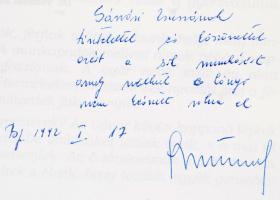 Sánási Zsuzsának
tisztelettel és köszönettel
azért a sok munkáért
amely nélkül e könyv
nem készült volna el
Bp. 1992 I. 17